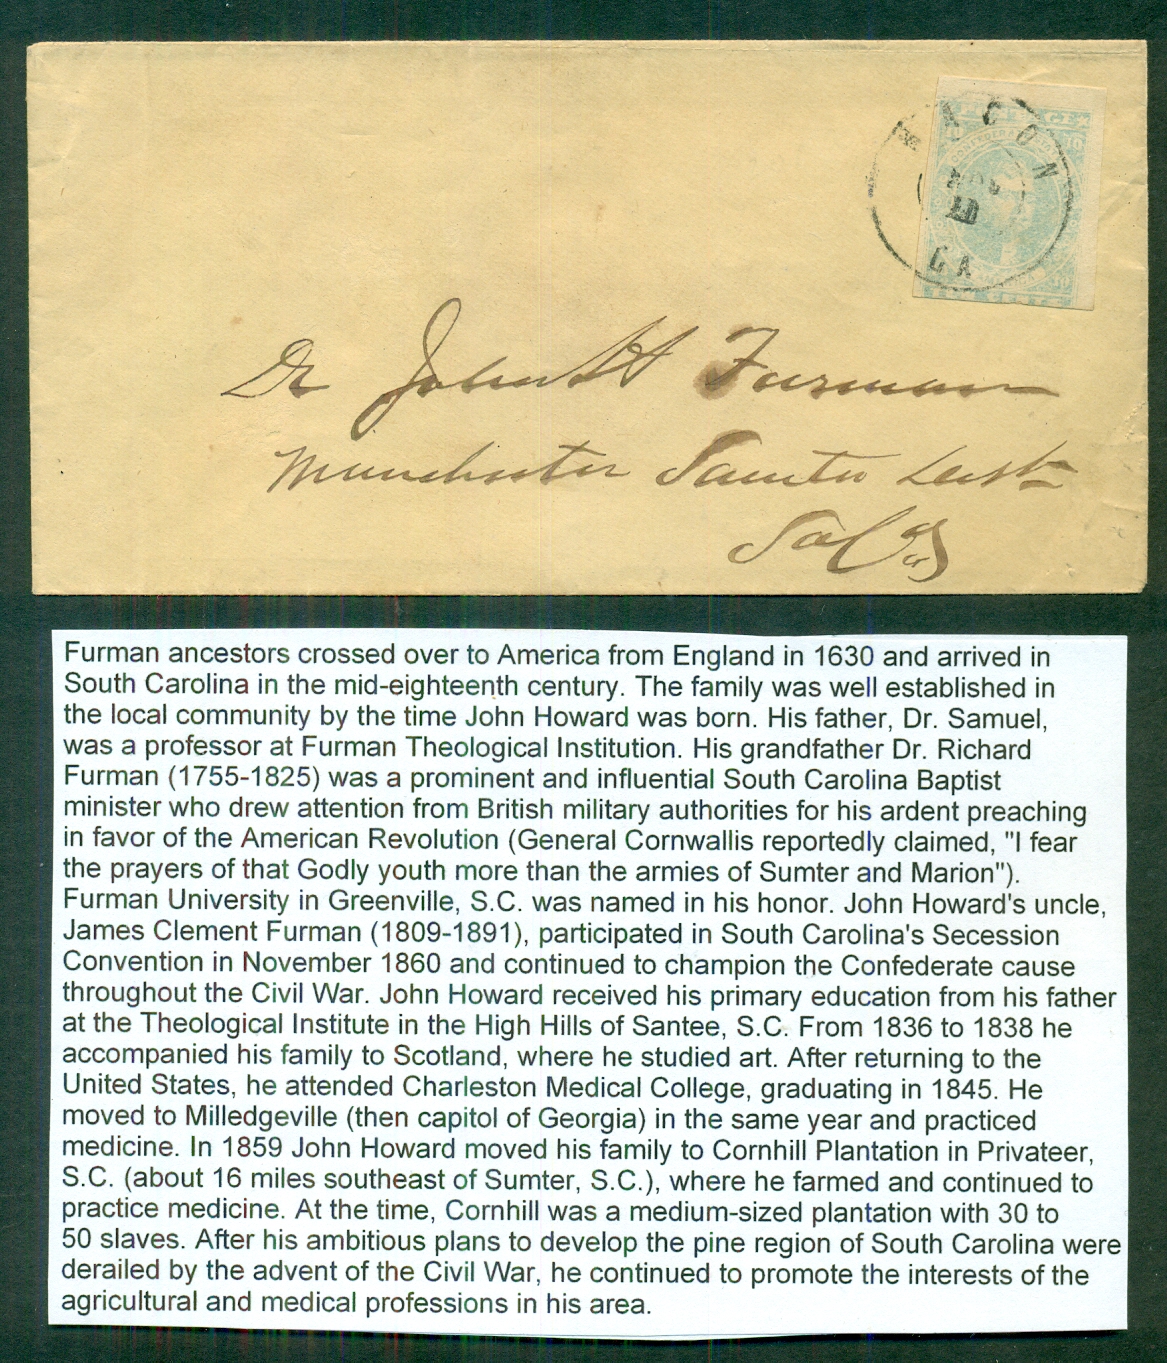 MACON
GA
CONFEDERATE
10
TEN CENTS
Dr John H Furman
Manchester Sumter Dist
So Ca
Furman ancestors crossed over to America from England in 1630 and arrived in
South Carolina in the mid-eighteenth century. The family was well established in
the local community by the time John Howard was born. His father, Dr. Samuel,
was a professor at Furman Theological Institution. His grandfather Dr. Richard
Furman (1755-1825) was a prominent and influential South Carolina Baptist
minister who drew attention from British military authorities for his ardent preaching
in favor of the American Revolution (General Cornwallis reportedly claimed, "I fear
the prayers of that Godly youth more than the armies of Sumter and Marion").
Furman University in Greenville, S.C. was named in his honor. John Howard's uncle,
James Clement Furman (1809-1891), participated in South Carolina's Secession
Convention in November 1860 and continued to champion the Confederate cause
throughout the Civil War. John Howard received his primary education from his father
at the Theological Institute in the High Hills of Santee, S.C. From 1836 to 1838 he
accompanied his family to Scotland, where he studied art. After returning to the
United States, he attended Charleston Medical College, graduating in 1845. He
moved to Milledgeville (then capitol of Georgia) in the same year and practiced
medicine. In 1859 John Howard moved his family to Cornhill Plantation in Privateer,
S.C. (about 16 miles southeast of Sumter, S.C.), where he farmed and continued to
practice medicine. At the time, Cornhill was a medium-sized plantation with 30 to
50 slaves. After his ambitious plans to develop the pine region of South Carolina were
derailed by the advent of the Civil War, he continued to promote the interests of the
agricultural and medical professions in his area.